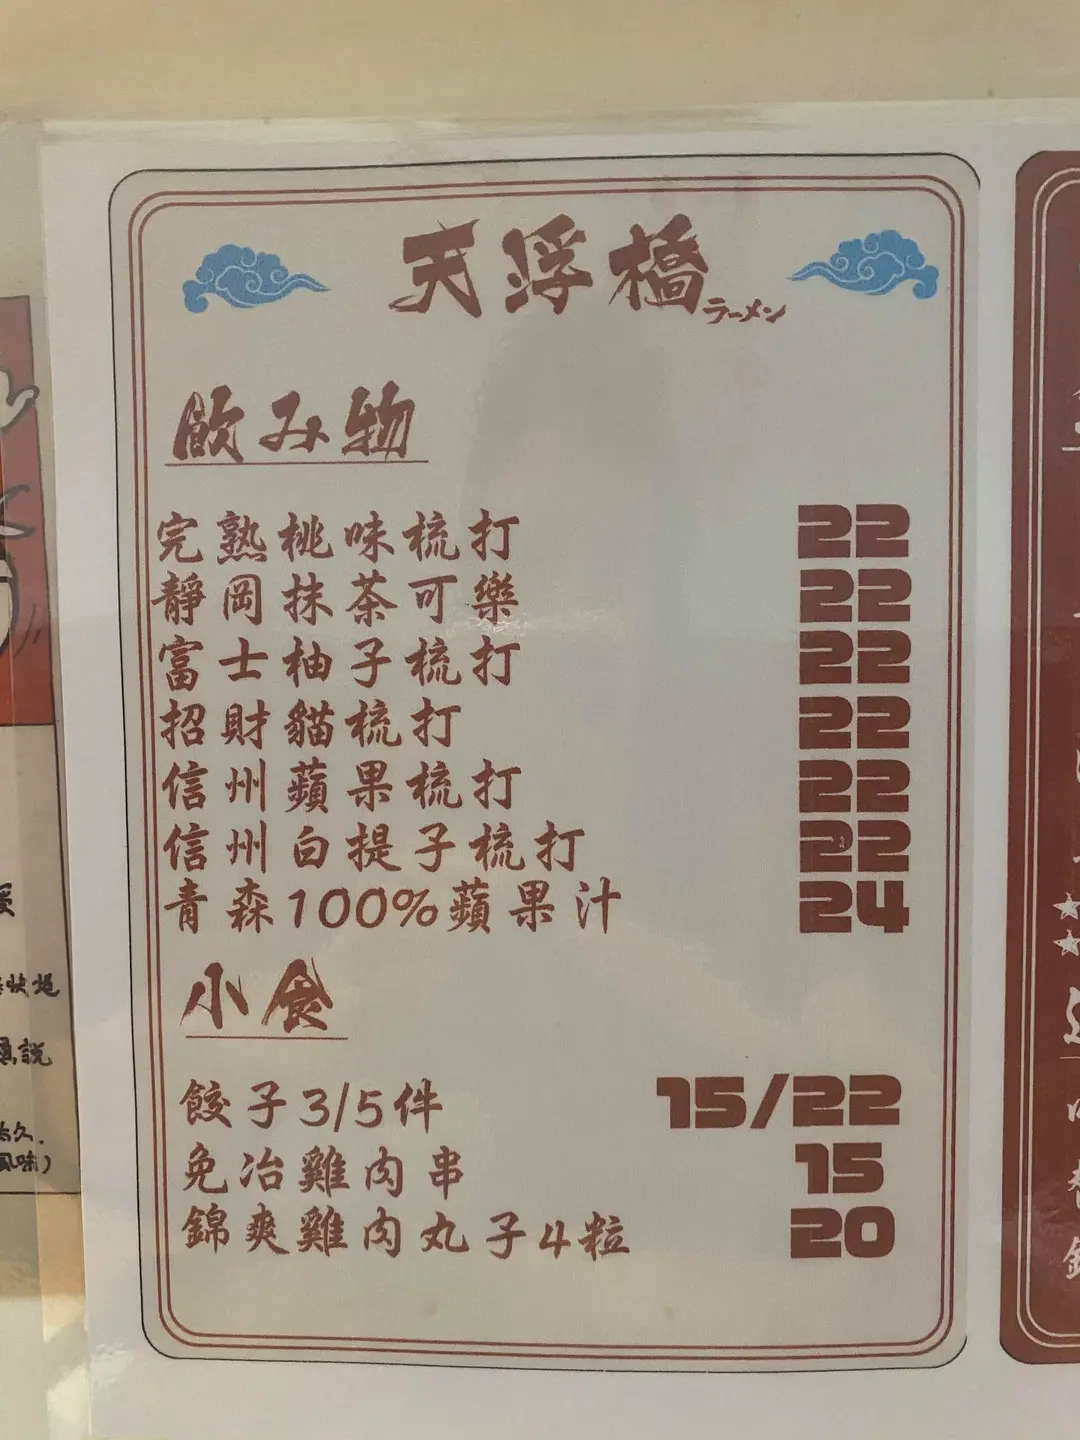 天浮橋
ラーメン
飲み物
完熟桃味梳打 22
靜岡抹茶可樂 22
富士柚子梳打 22
招財貓梳打 22
信州蘋果梳打 22
信州白提子梳打 22
青森100%蘋果汁 24
小食
餃子3/5件 15/22
免治雞肉串 15
錦爽雞肉丸子4粒 20